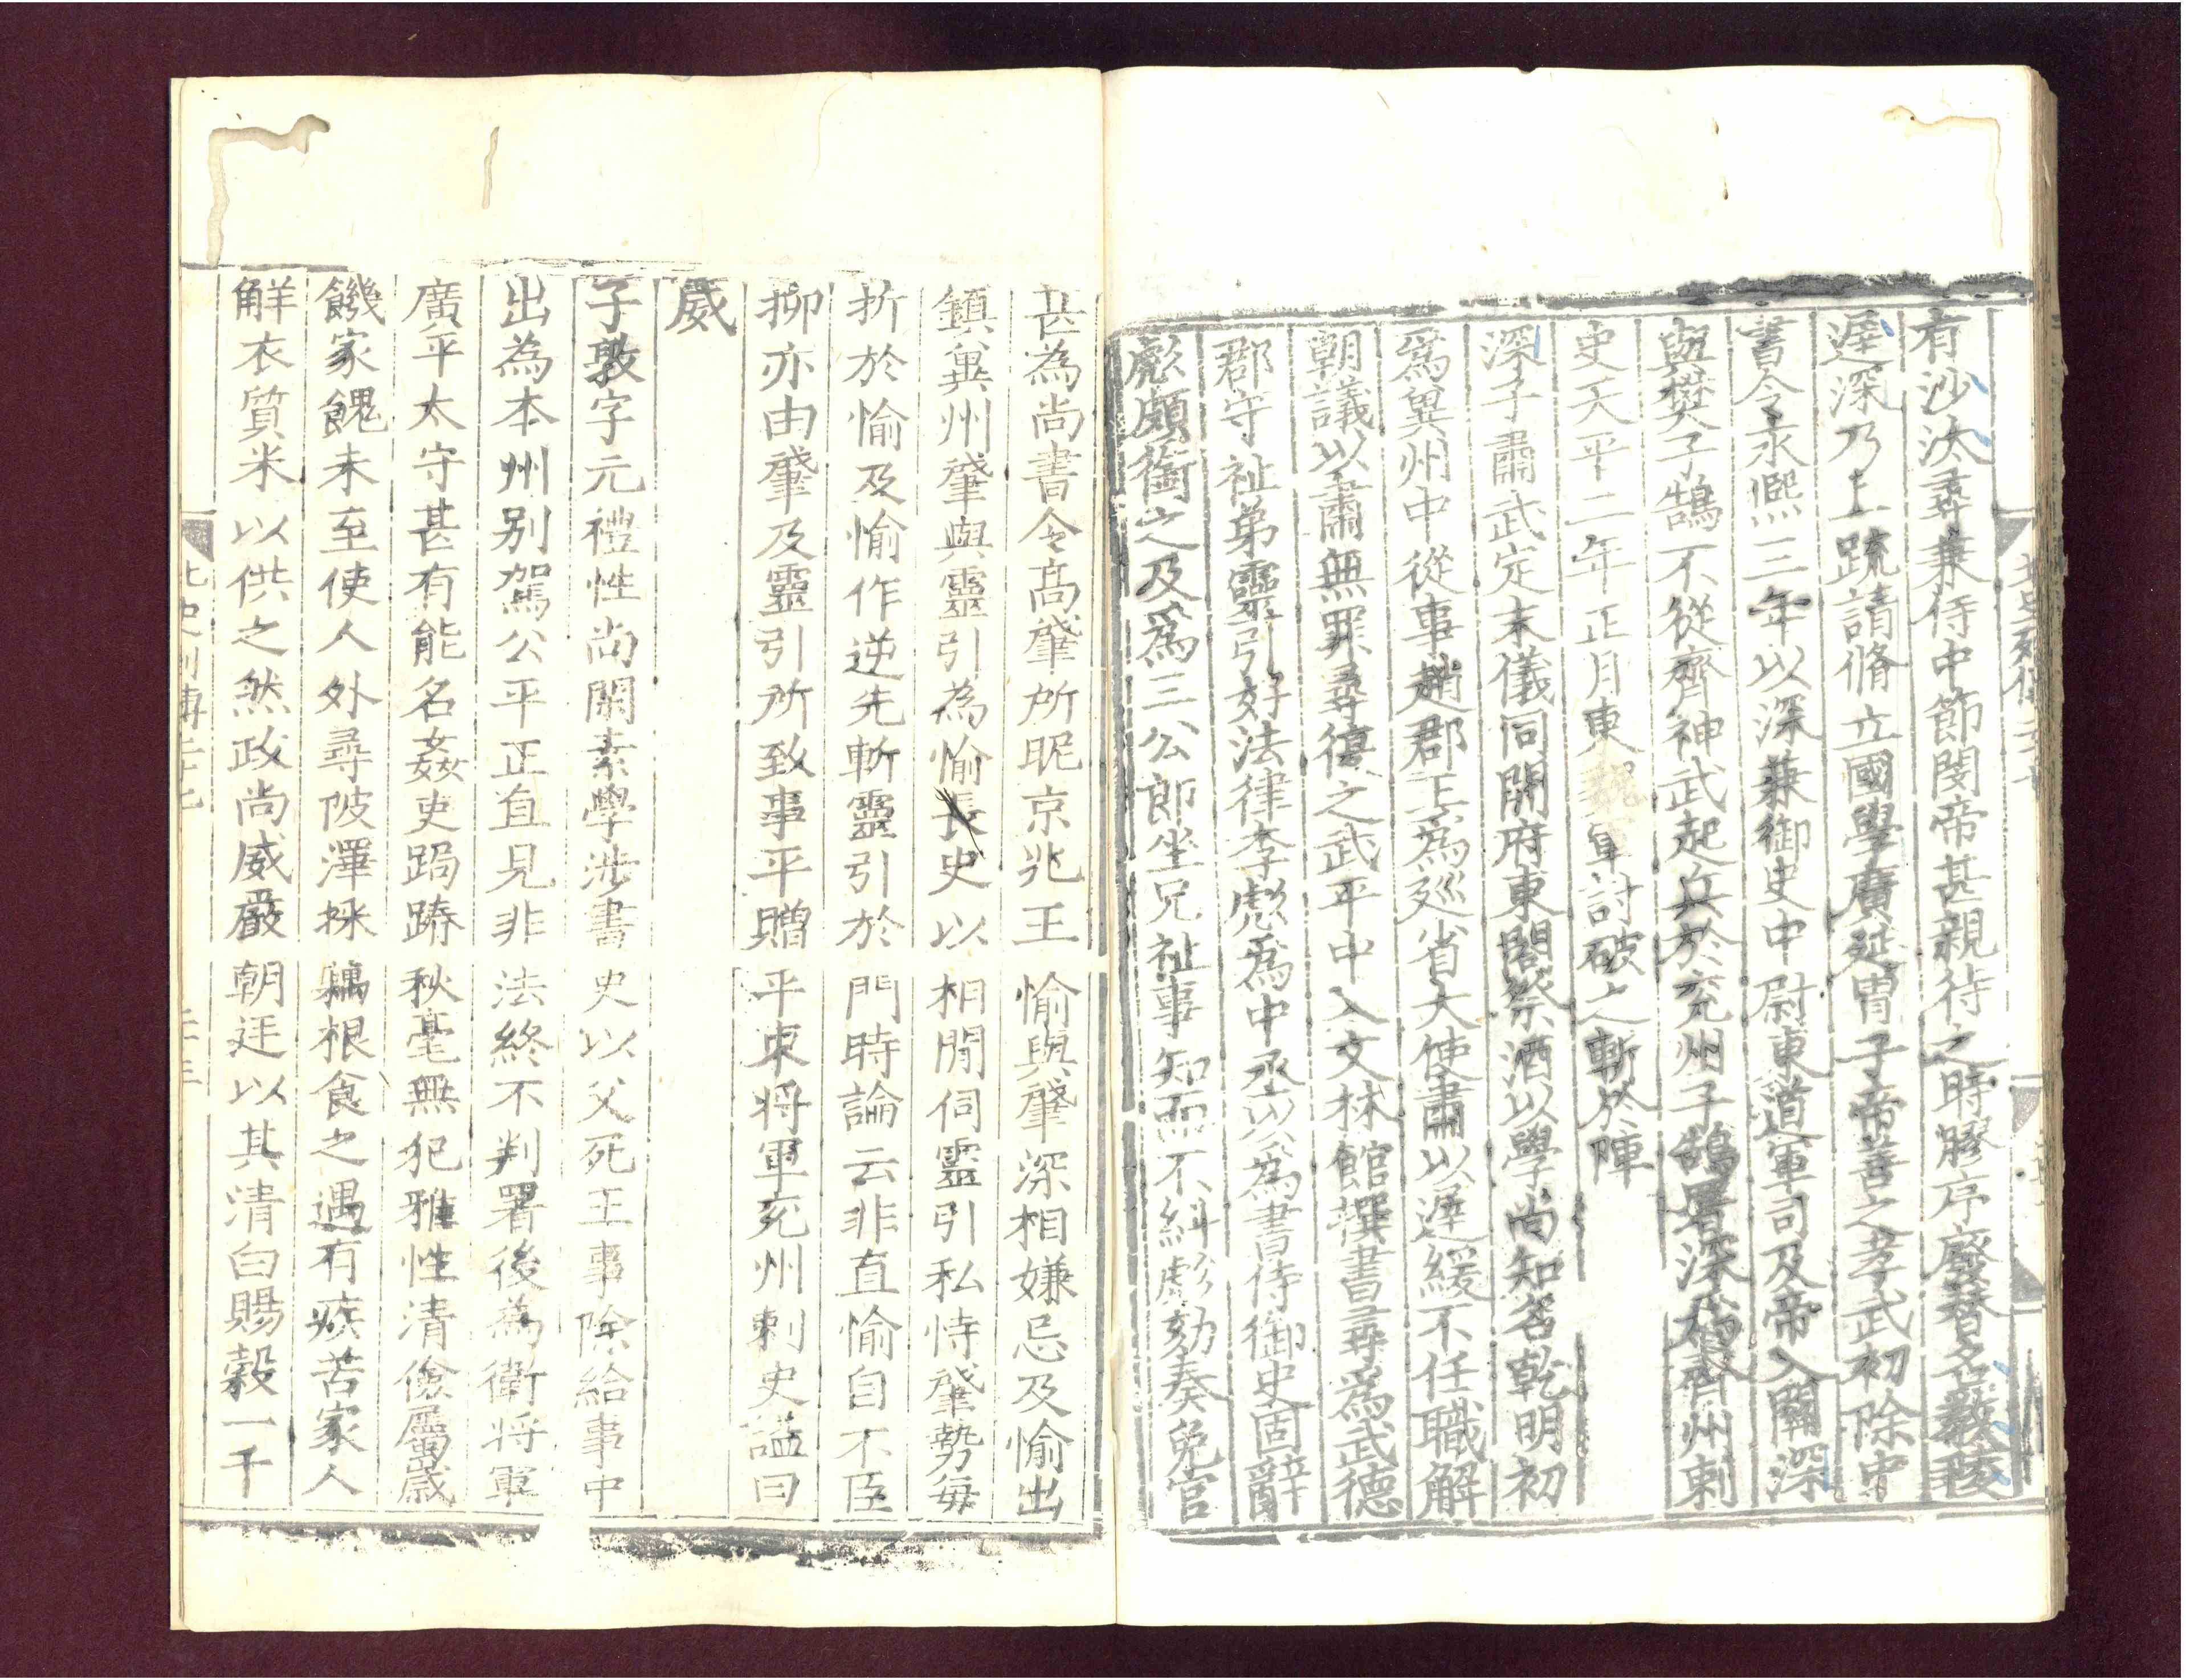 北史列傳二十
有沙汰尋兼侍中節閔帝甚親待之時膠序廢替名敎陵
遲深乃上疏請脩立國學廣延冑子帝善之孝武初除中
書令永熙三年以深兼御史中尉東道軍司及帝入關深
與樊子鵠不從齊神武起兵於兖州子鵠署深爲齊州刺
史天平二年正月東魏軍討破之斬於陣
深子肅武定末儀同開府東閤祭酒以學尚知名乾明初
爲兾州中從事趙郡王爲廵省大使肅以遲緩不任職解
朝議以肅無罪尋復之武平中入文林館撰書尋爲武德
郡守 祉弟靈引好法律李彪爲中丞以爲書侍御史固辭
彪頗銜之及爲三公郎坐兄祉事知而不糾彪劾奏免官
甚為尚書令高肇所昵京兆王愉與肇深相嫌忌及愉出
鎮兾州肇與靈引為愉長史以相閒伺靈引私恃肇勢每
折於愉及愉作逆先斬靈引於門時論云非直愉自不臣
抑亦由肇及靈引所致事平贈平東将軍兖州刺史謚曰
威
子敦字元禮性尚閑素學涉書史以父死王事除給事中
出為本州别駕公平正直見非法終不判署後為衛将軍
廣平太守甚有能名姦吏跼蹐秋毫無犯雅性清儉屬歲
饑家餽未至使人外尋陂澤採藕根食之遇有疾苦家人
觧衣質米以供之然政尚威嚴朝廷以其清白賜穀一千
北史列傳二十七 二十三